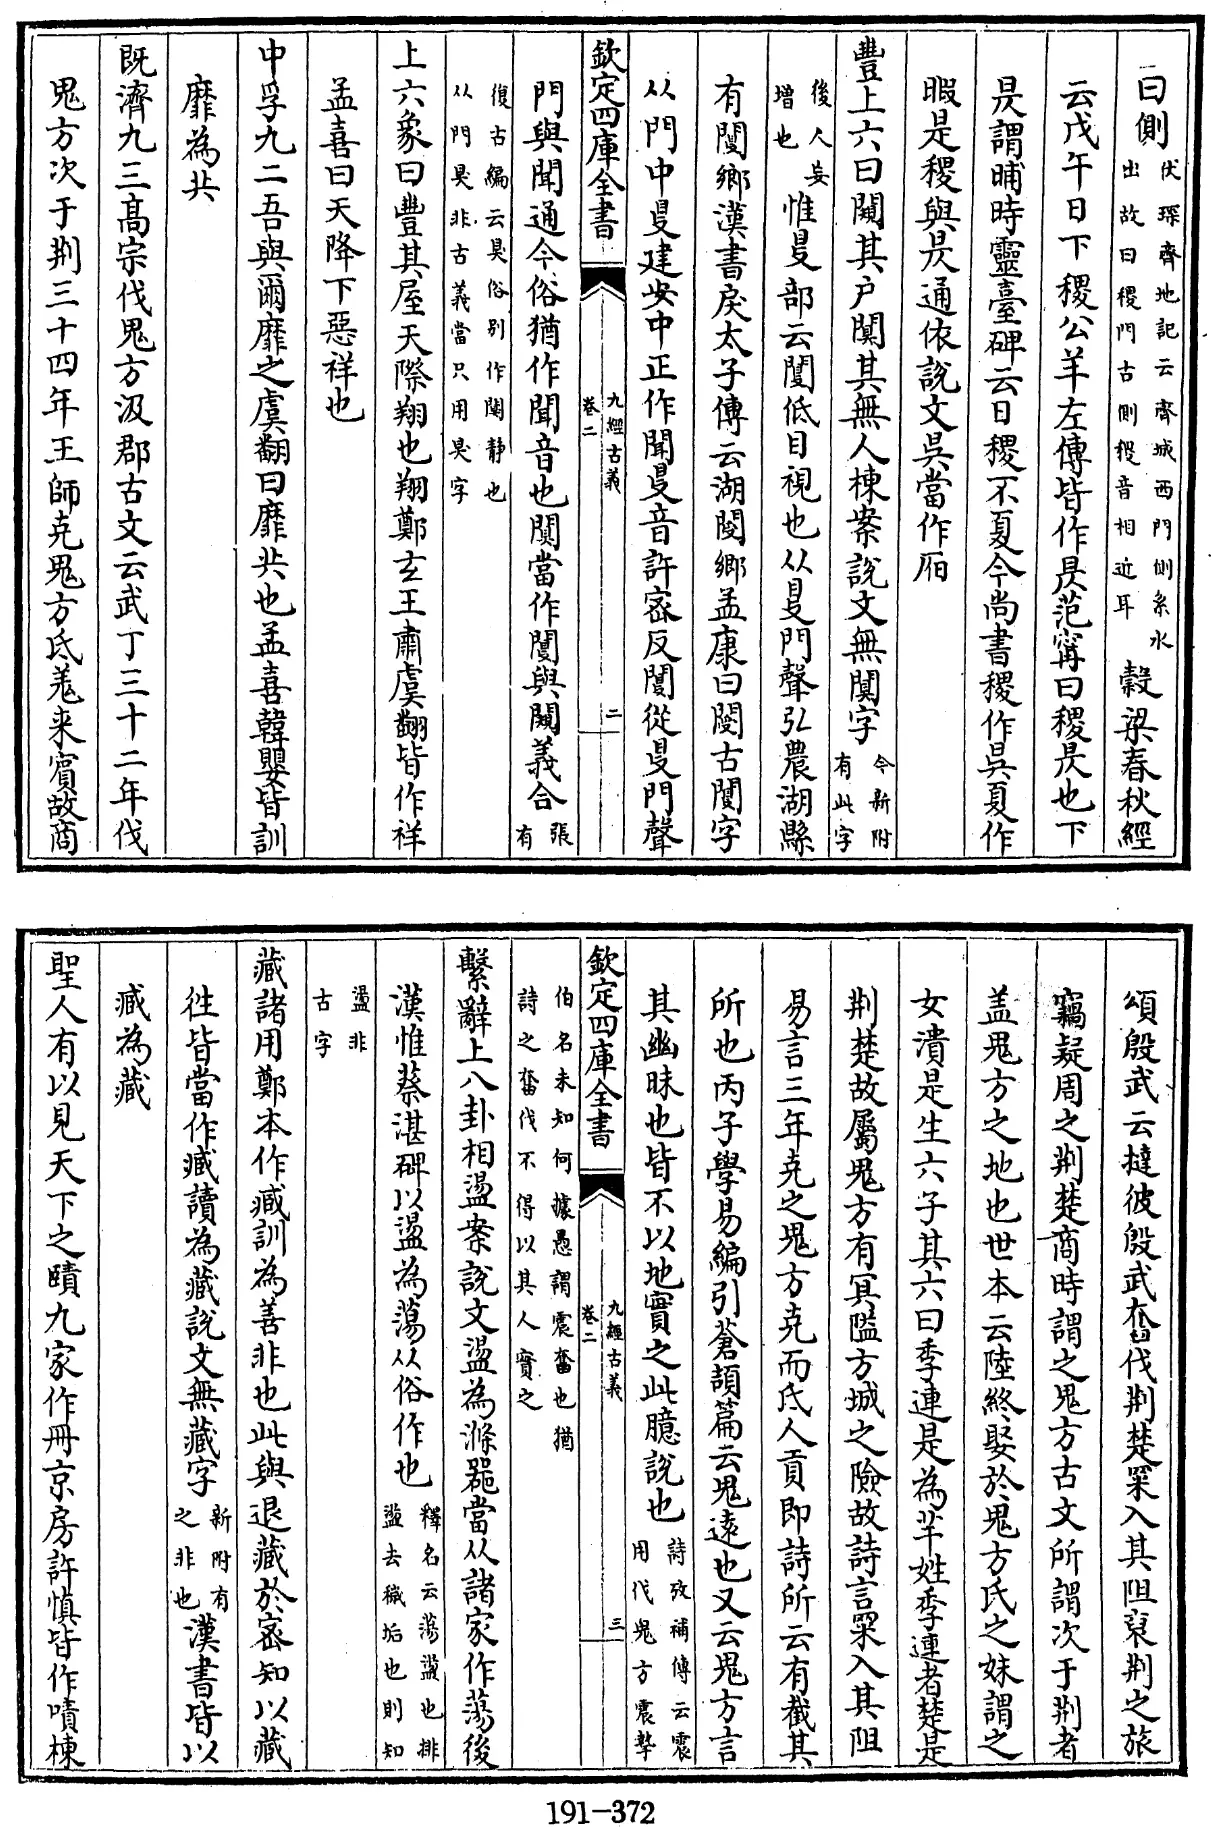 曰側伏琛齊地記云齊城西門側系水出故曰稷門古側稷音相近耳穀梁春秋經
云戊午日下稷公羊左傳皆作昃范甯曰稷昃也下
昃謂晡時靈臺碑云日稷不夏今尚書稷作吳夏作
暇是稷與昃通依說文吳當作㕻
豐上六曰闚其户闃其無人棟案說文無闃字今新附有此字
後人妄增也惟𥄎部云闅低目視也从𥄎門聲弘農湖縣
有闅鄉漢書戾太子傳云湖閿鄉孟康曰閿古闅字
从門中𥄎建安中正作聞𥄎音許密反闅從𥄎門聲
欽定四庫全書 九經古義 卷二 二
門與聞通今俗猶作聞音也闃當作闅與闚義合張有
復古編云狊俗别作闃静也从門狊非古義當只用狊字
上六象曰豐其屋天際翔也翔鄭玄王肅虞翻皆作祥
孟喜曰天降下惡祥也
中孚九二吾與爾靡之虞翻曰靡共也孟喜韓嬰皆訓
靡為共
既濟九三高宗伐鬼方汲郡古文云武丁三十二年伐
鬼方次于荆三十四年王師克鬼方氐羌来賓故商
頌殷武云撻彼殷武奮伐荆楚罙入其阻裒荆之旅
竊疑周之荆楚商時謂之鬼方古文所謂次于荆者
盖鬼方之地也世本云陸終娶於鬼方氏之妹謂之
女潰是生六子其六曰季連是為芈姓季連者楚是
荆楚故屬鬼方有冥隘方城之險故詩言罙入其阻
易言三年克之鬼方克而氐人貢即詩所云有截其
所也丙子學易編引蒼頡篇云鬼遠也又云鬼方言
其幽昧也皆不以地實之此臆說也詩攷補傳云震用伐鬼方震摯
欽定四庫全書 九經古義 卷二 三
伯名未知何據愚謂震奮也猶詩之奮伐不得以其人實之
繫辭上八卦相盪案說文盪為滌器當从諸家作蕩後
漢惟蔡湛碑以盪為蕩从俗作也釋名云蕩盪也排盪去穢垢也則知
盪非古字
藏諸用鄭本作臧訓為善非也此與退藏於密知以藏
徃皆當作臧讀為藏說文無藏字新附有之非也漢書皆以
臧為藏
聖人有以見天下之賾九家作冊京房許慎皆作嘖棟
191-372